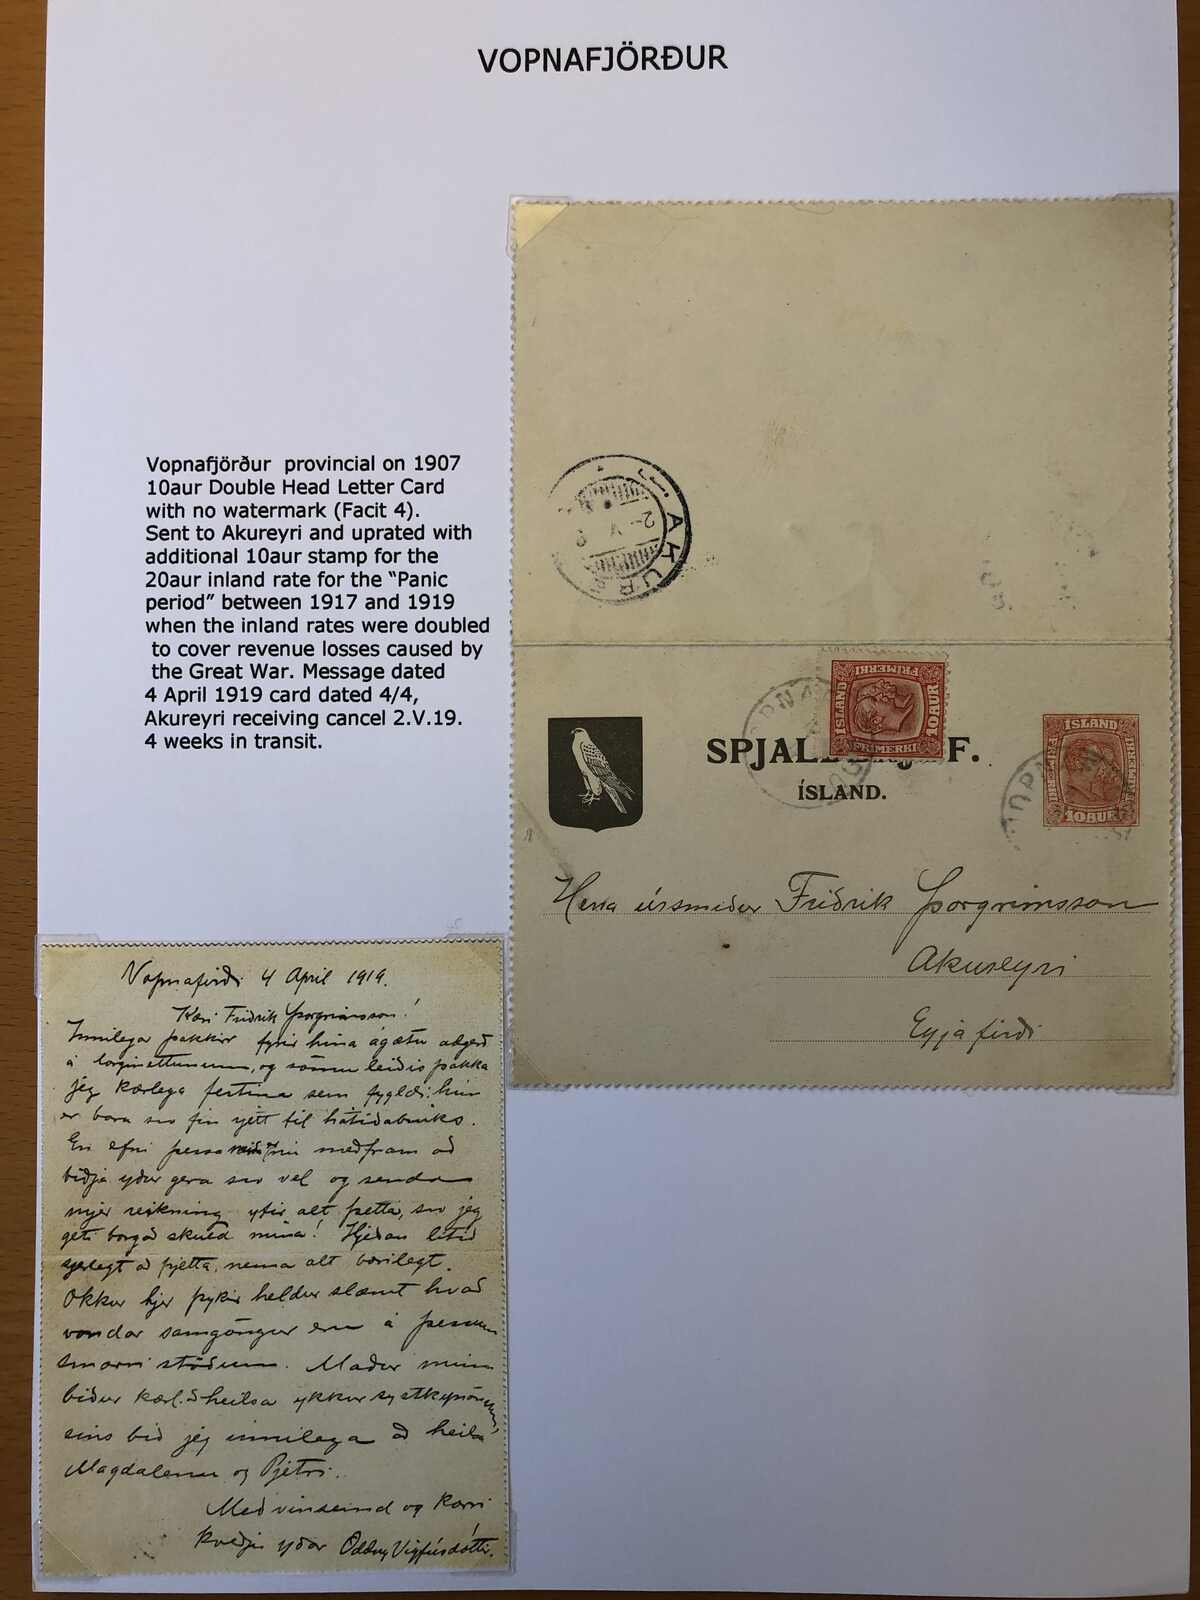 VOPNAFJÖRÐUR
Vopnafjörður provincial on 1907
10aur Double Head Letter Card
with no watermark (Facit 4).
Sent to Akureyri and uprated with
additional 10aur stamp for the
20aur inland rate for the “Panic
period” between 1917 and 1919
when the inland rates were doubled
to cover revenue losses caused by
the Great War. Message dated
4 April 1919 card dated 4/4,
Akureyri receiving cancel 2.V.19.
4 weeks in transit.
AKUR
2 V
FRIMERKI
ISLAND
10 AUR
FRIMERKI
SPJAL F.
ÍSLAND.
ISLAND
10 AUR
Herra úrsmiður Friðrik Þorgrímsson
Akureyri
Eyjafirði
Vopnafirði 4 April 1919.
Kæri Friðrik Þorgrímsson!
Innilega þakkir fyrir hina ágætu aðgerð
á lorgnettunum, og sömuleiðis þakka
jeg kærlega festina sem fylgdi: hún
er bara svo fín rjétt til hátíðabrúks.
En efni þessa miða er nú meðfram að
biðja yður gera svo vel og senda
mjer reikning yfir alt þetta, svo jeg
geti borgað skuld mína! Hjeðan lítið
að frjetta, nema alt bærilegt.
Okkur hjer þykir heldur slæmt hvað
vondar samgöngur eru á þessum
stöðum. Maður minn
biður kærl. að heilsa ykkur systkynónum,
eins bið jeg innilega að heilsa
Magdalenu og Pjetri.
Með vinsemd og kærri
kveðju yðar Oddny Vigfúsdóttir.